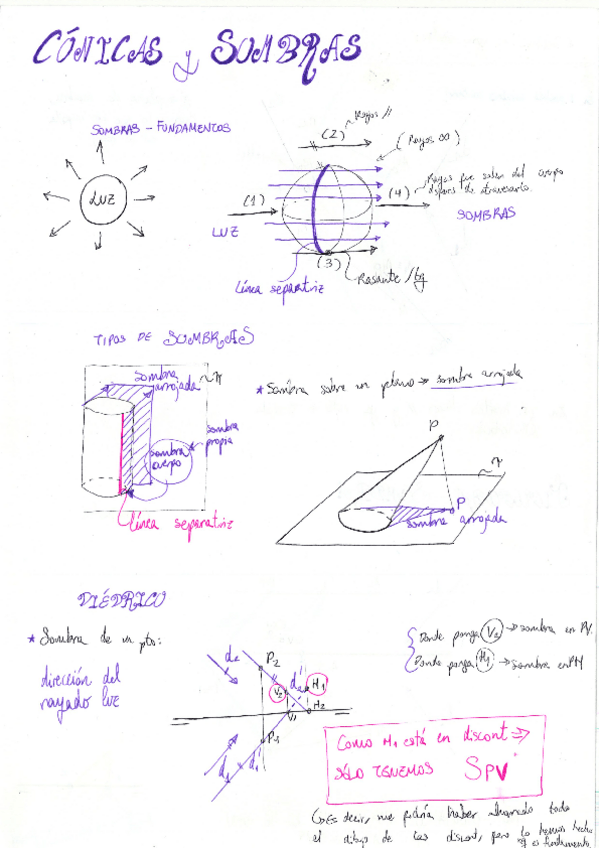 CÓNICAS y SOMBRAS
SOMBRAS - FUNDAMENTOS
LUZ
(1)
LUZ
(2)
Rayos //
(Rayos ∞)
(4)
Rayos que salen del cuerpo
después de atravesarlo.
SOMBRAS
(3)
Rasante /tg
Línea separatriz
TIPOS DE SOMBRAS
sombra
arrojada
π
sombra
propia
sombra
cuerpo
Línea separatriz
* Sombra sobre un plano ⇒ sombra arrojada
P
π
P
sombra arrojada
DIÉDRICO
* Sombra de un pto:
dirección del
rayado luz
d2
P2
d2'
V2
H1
H2
V1
P1
d1
d1'
Donde ponga V2 → sombra en PV.
Donde ponga H1 → sombra en PH
Como H1 está en discont ⇒
SÓLO TENEMOS SPV
Es decir, me podría haber ahorrado todo
el dibujo de las discont, pero lo hemos hecho
el fundamento.